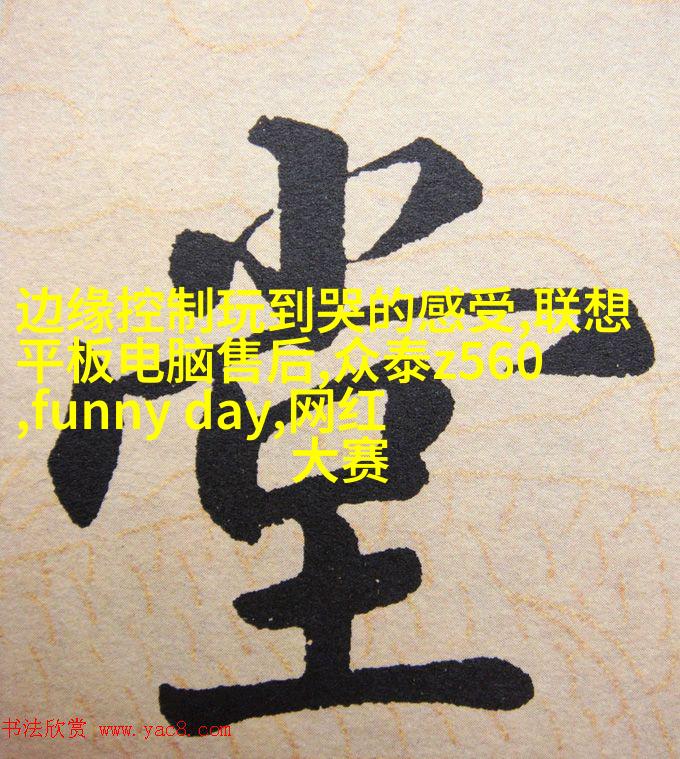 堂
边缘控制玩到哭的感受,联想
平板电脑售后,众泰z560
,funny day,网红
大赛
书法欣赏 www.yac8.com